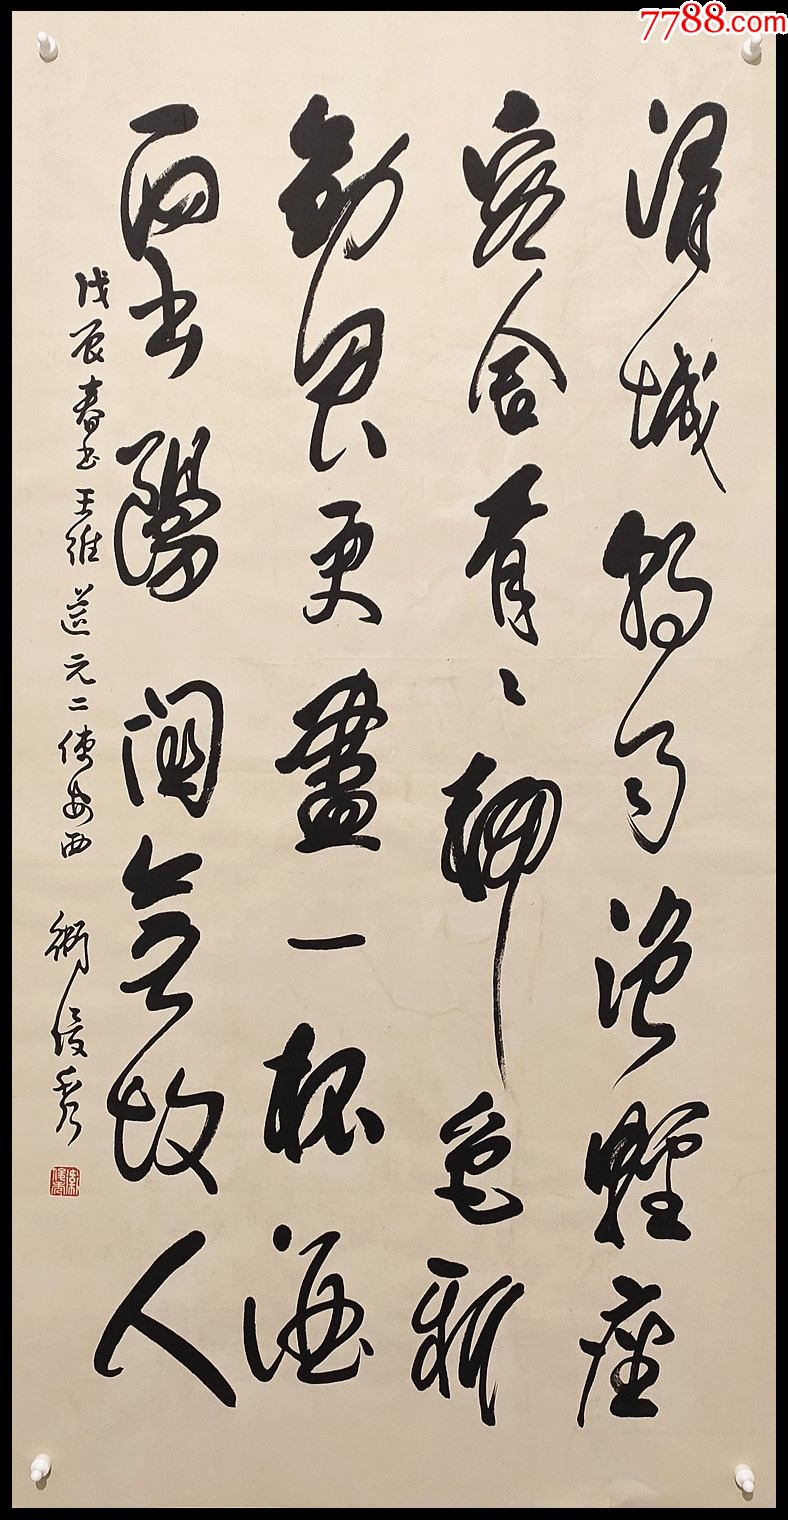 7788.com
渭城朝雨浥輕塵
客舍青々柳色新
勸君更盡一杯酒
西出陽關無故人
戊辰春書王維送元二使安西 衛俊秀